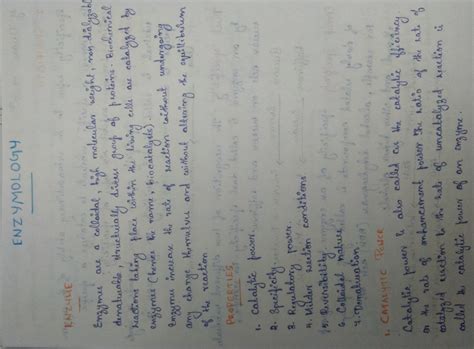 ENZYMOLOGY
ENZYME
Enzymes are a colloidal, high molecular weight, non-dialysible
denaturable, structurally diverse group of proteins. Biochemical
reactions taking place within the living cells are catalyzed by
enzymes (hence the name, biocatalysts).
Enzymes increase the rate of reaction without undergoing
any change themselves and without altering the equilibrium
of the reaction
PROPERTIES
1. Catalytic power
2. Specificity
3. Regulatory power
4. Milder reaction conditions
5. Reversibility
6. Colloidal nature
7. Denaturation
1. CATALYTIC POWER
Catalytic power is also called as the catalytic efficiency
or the rate of enhancement power. The ratio of the rate of
catalysed reaction to the rate of uncatalyzed reaction is
called the catalytic power of an enzyme.